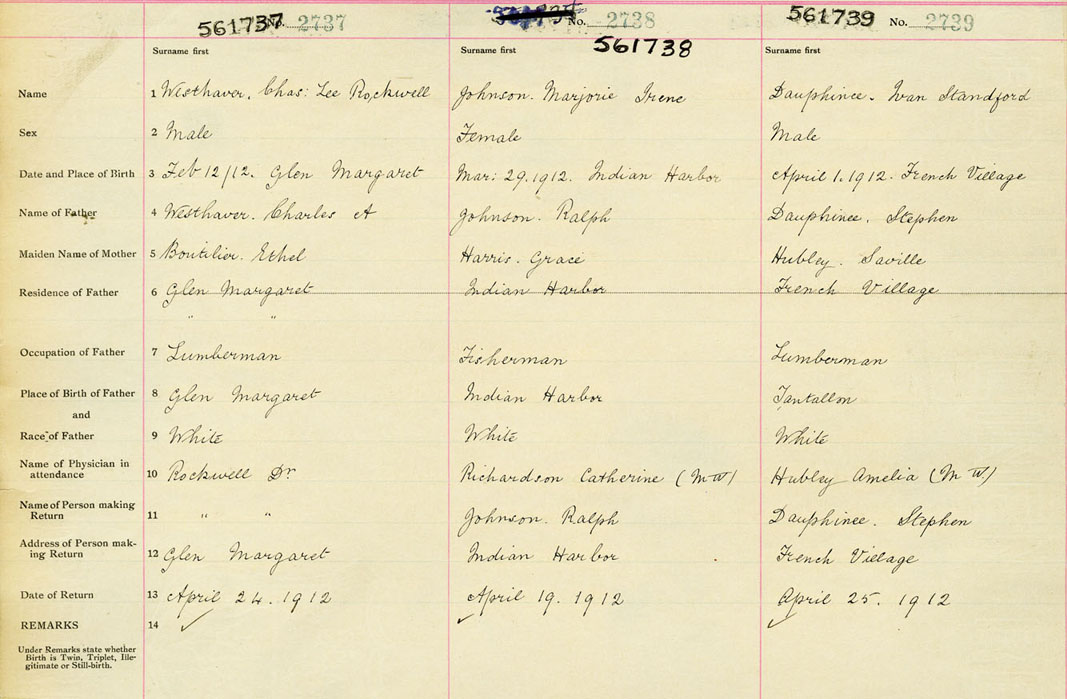 561737 No. 2737 No. 2738 561739 No. 2739
561738
Surname first Surname first Surname first
Name 1 Westhaver. Chas: Lee Rockwell Johnson. Marjorie Irene Dauphinee. Ivan Standford
Sex 2 Male Female Male
Date and Place of Birth 3 Feb 12/12. Glen Margaret Mar: 29.1912. Indian Harbor April 1.1912. French Village
Name of Father 4 Westhaver. Charles A Johnson. Ralph Dauphinee. Stephen
Maiden Name of Mother 5 Boutilier. Ethel Harris. Grace Hubley. Saville
Residence of Father 6 Glen Margaret Indian Harbor French Village
" "
Occupation of Father 7 Lumberman Fisherman Lumberman
Place of Birth of Father 8 Glen Margaret Indian Harbor Tantallon
and
Race of Father 9 White White White
Name of Physician in
attendance 10 Rockwell Dr Richardson Catherine (M W) Hubley Amelia (M W.)
Name of Person making
Return 11 " " Johnson. Ralph Dauphinee. Stephen
Address of Person mak-
ing Return 12 Glen Margaret Indian Harbor French Village
Date of Return 13 April 24. 1912 April 19. 1912 April 25. 1912
REMARKS 14
Under Remarks state whether
Birth is Twin, Triplet, Ille-
gitimate or Still-birth.